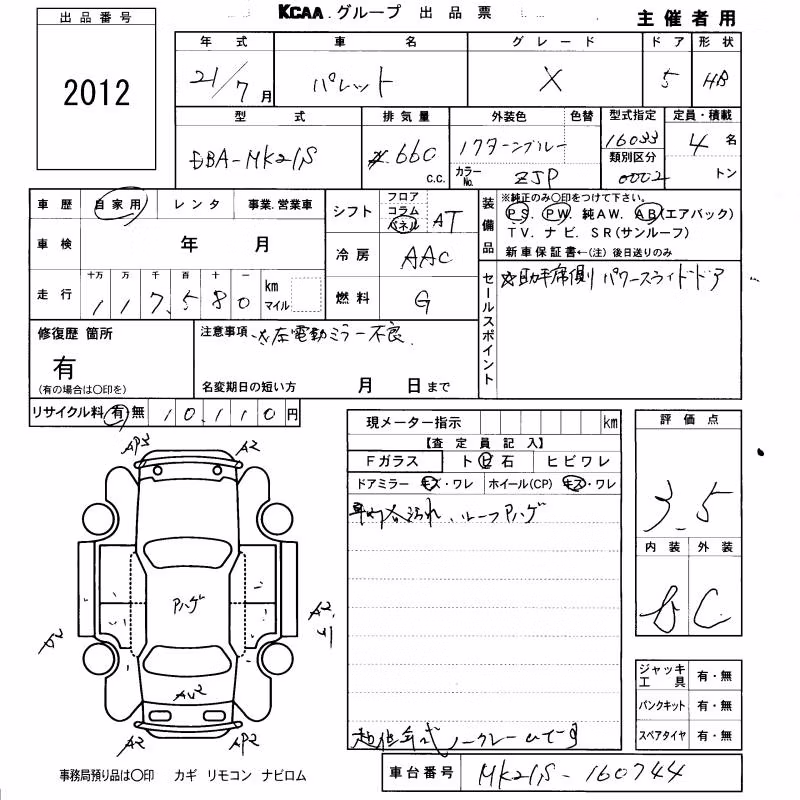 出品番号
KCAA グループ 出品票
主催者用
2012
年式 車名 グレード ドア 形状
21/7月 パレット X 5 HB
型式 排気量 外装色 色替 型式指定 定員・積載
DBA-MK21S 660 c.c. 16033 4名
類別区分
カラーNo. ZJP 0002 トン
車歴 自家用 レンタ 事業.営業車
シフト フロア コラム パネル AT
装備品 ※純正のみ○印をつけて下さい。
PS. PW. 純AW. AB(エアバック)
TV. ナビ. SR(サンルーフ)
新車保証書←(注)後日送りのみ
車検 年 月
冷房 AAC
走行 十万 万 千 百 十 一 km マイル
117,580
燃料 G
セールスポイント ☆助手席側パワースライドドア
修復歴 箇所
有
(有の場合は○印を)
注意事項 ☆左電動ミラー不良.
名変期日の短い方 月 日まで
リサイクル料 有 無 10,110円
現メーター指示 km
【査定員記入】
Fガラス トビ石 ヒビワレ
ドアミラー キズ・ワレ ホイール(CP) キズ・ワレ
車内 汚れ、ルーフアハゲ
評価点
3.5
内装 外装
C
AP3 A2
アハゲ
A2
A2
A2 AP2
ジャッキ工具 有・無
パンクキット 有・無
スペアタイヤ 有・無
ノークレームです
車台番号 MK21S-160744
事務局預り品は○印 カギ リモコン ナビロム